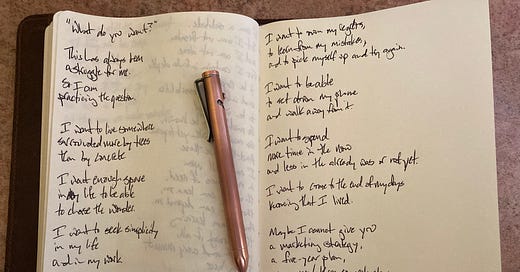 "What do you want?"
This has always been
a struggle for me.
So I am
practicing the question.
I want to live somewhere
surrounded more by trees
than by concrete
I want enough space
in my life to be able
to chase the wonder.
I want to seek simplicity
in my life
and in my work.
I want to own my regrets,
to learn from my mistakes,
and to pick myself up and try again.
I want to be able
to set down my phone
and walk away from it.
I want to spend
more time in the now
and less in the already was or not yet.
I want to come to the end of my days
knowing that I lived.
Maybe I cannot give you
a marketing strategy,
a five-year plan,